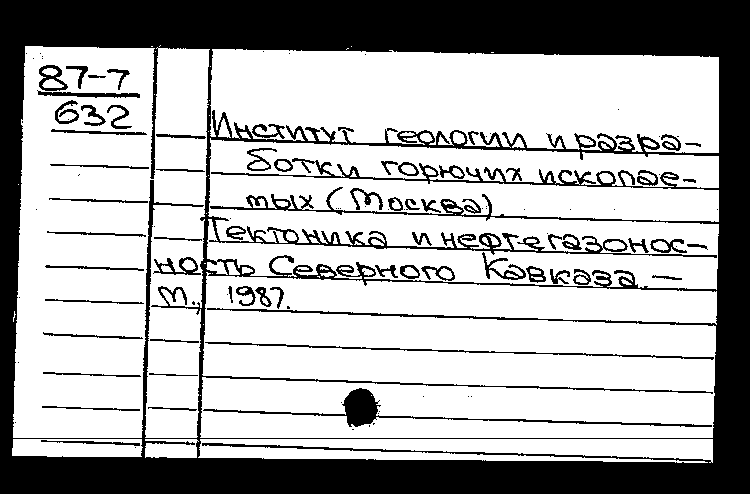 87-7
632
Институт геологии и разра-
ботки горючих ископае-
мых (Москва).
Тектоника и нефтегазонос-
ность Северного Кавказа. —
М., 1987.